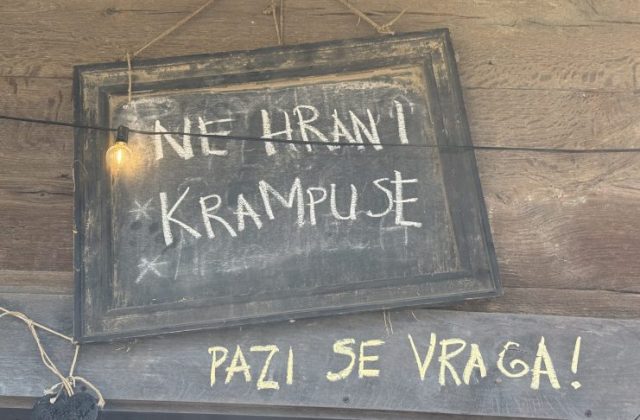 NE HRANI
KRAMPUSE
PAZI SE VRAGA!